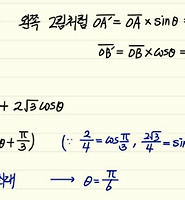 왼쪽 그림처럼 $\overline{OA'} = \overline{OA} \times \sin\theta =$
$\overline{OB'} = \overline{OB} \times \cos\theta =$
$+ 2\sqrt{3}\cos\theta$
$\theta + \frac{\pi}{3})$ $(\because \frac{2}{4} = \cos\frac{\pi}{3}, \frac{2\sqrt{3}}{4} = \sin$
$\longrightarrow \theta = \frac{\pi}{6}$